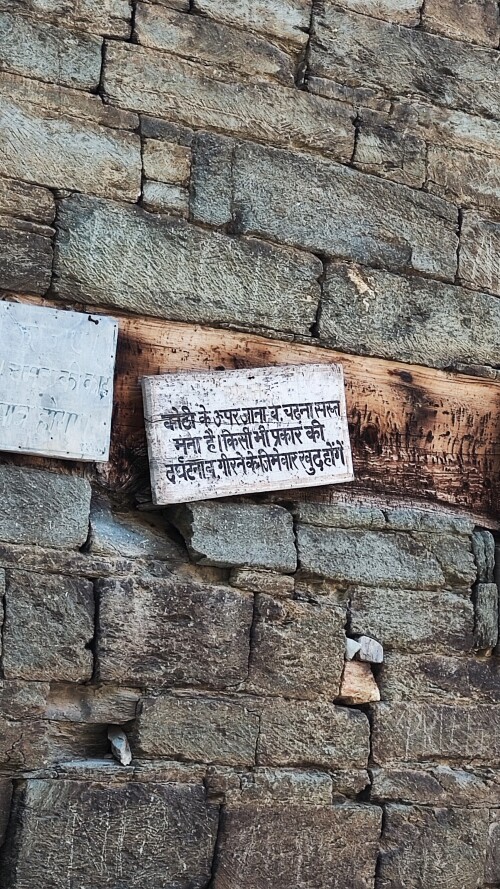 कोठी के ऊपर जाना व चढ़ना सख्त
मना है। किसी भी प्रकार की
दुर्घटना व गीरने के जिमेवार खुद होंगें